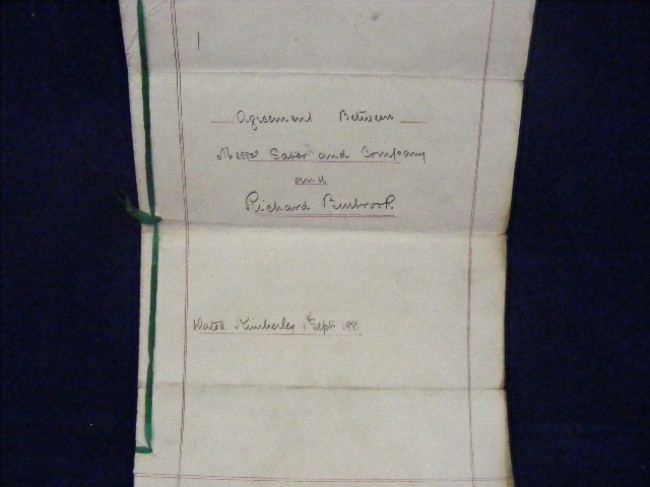 Agreement Between
Messrs Sabor and Company
and
Richard Burbrook
Dated Kimberley 1st Sept 188